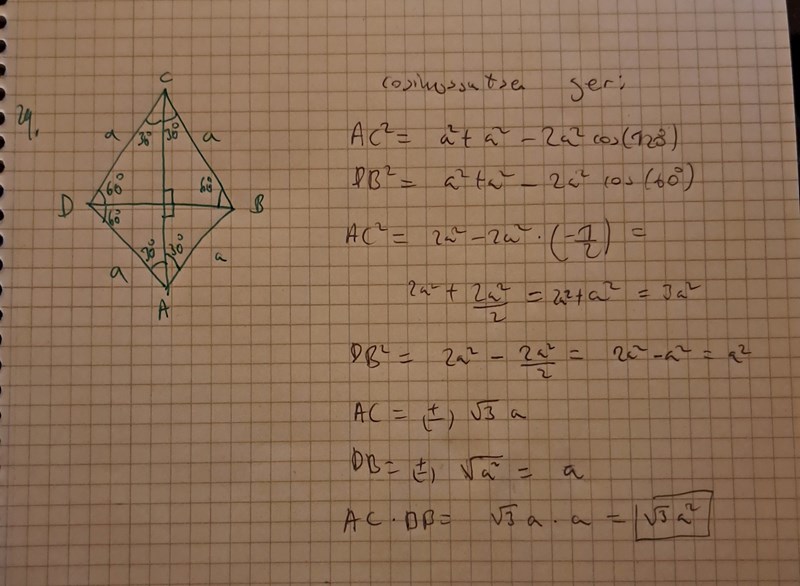 24.
C
a 30° 30° a
60° 60°
D B
60°
30° 30°
a a
A
cosinussatsen ger:
AC² = a² + a² - 2a² cos(120°)
DB² = a² + a² - 2a² cos(60°)
AC² = 2a² - 2a² · (-1/2) =
2a² + 2a²/2 = 2a² + a² = 3a²
DB² = 2a² - 2a²/2 = 2a² - a² = a²
AC = (±) √3 a
DB = (±) √a² = a
AC · DB = √3 a · a = √3 a²